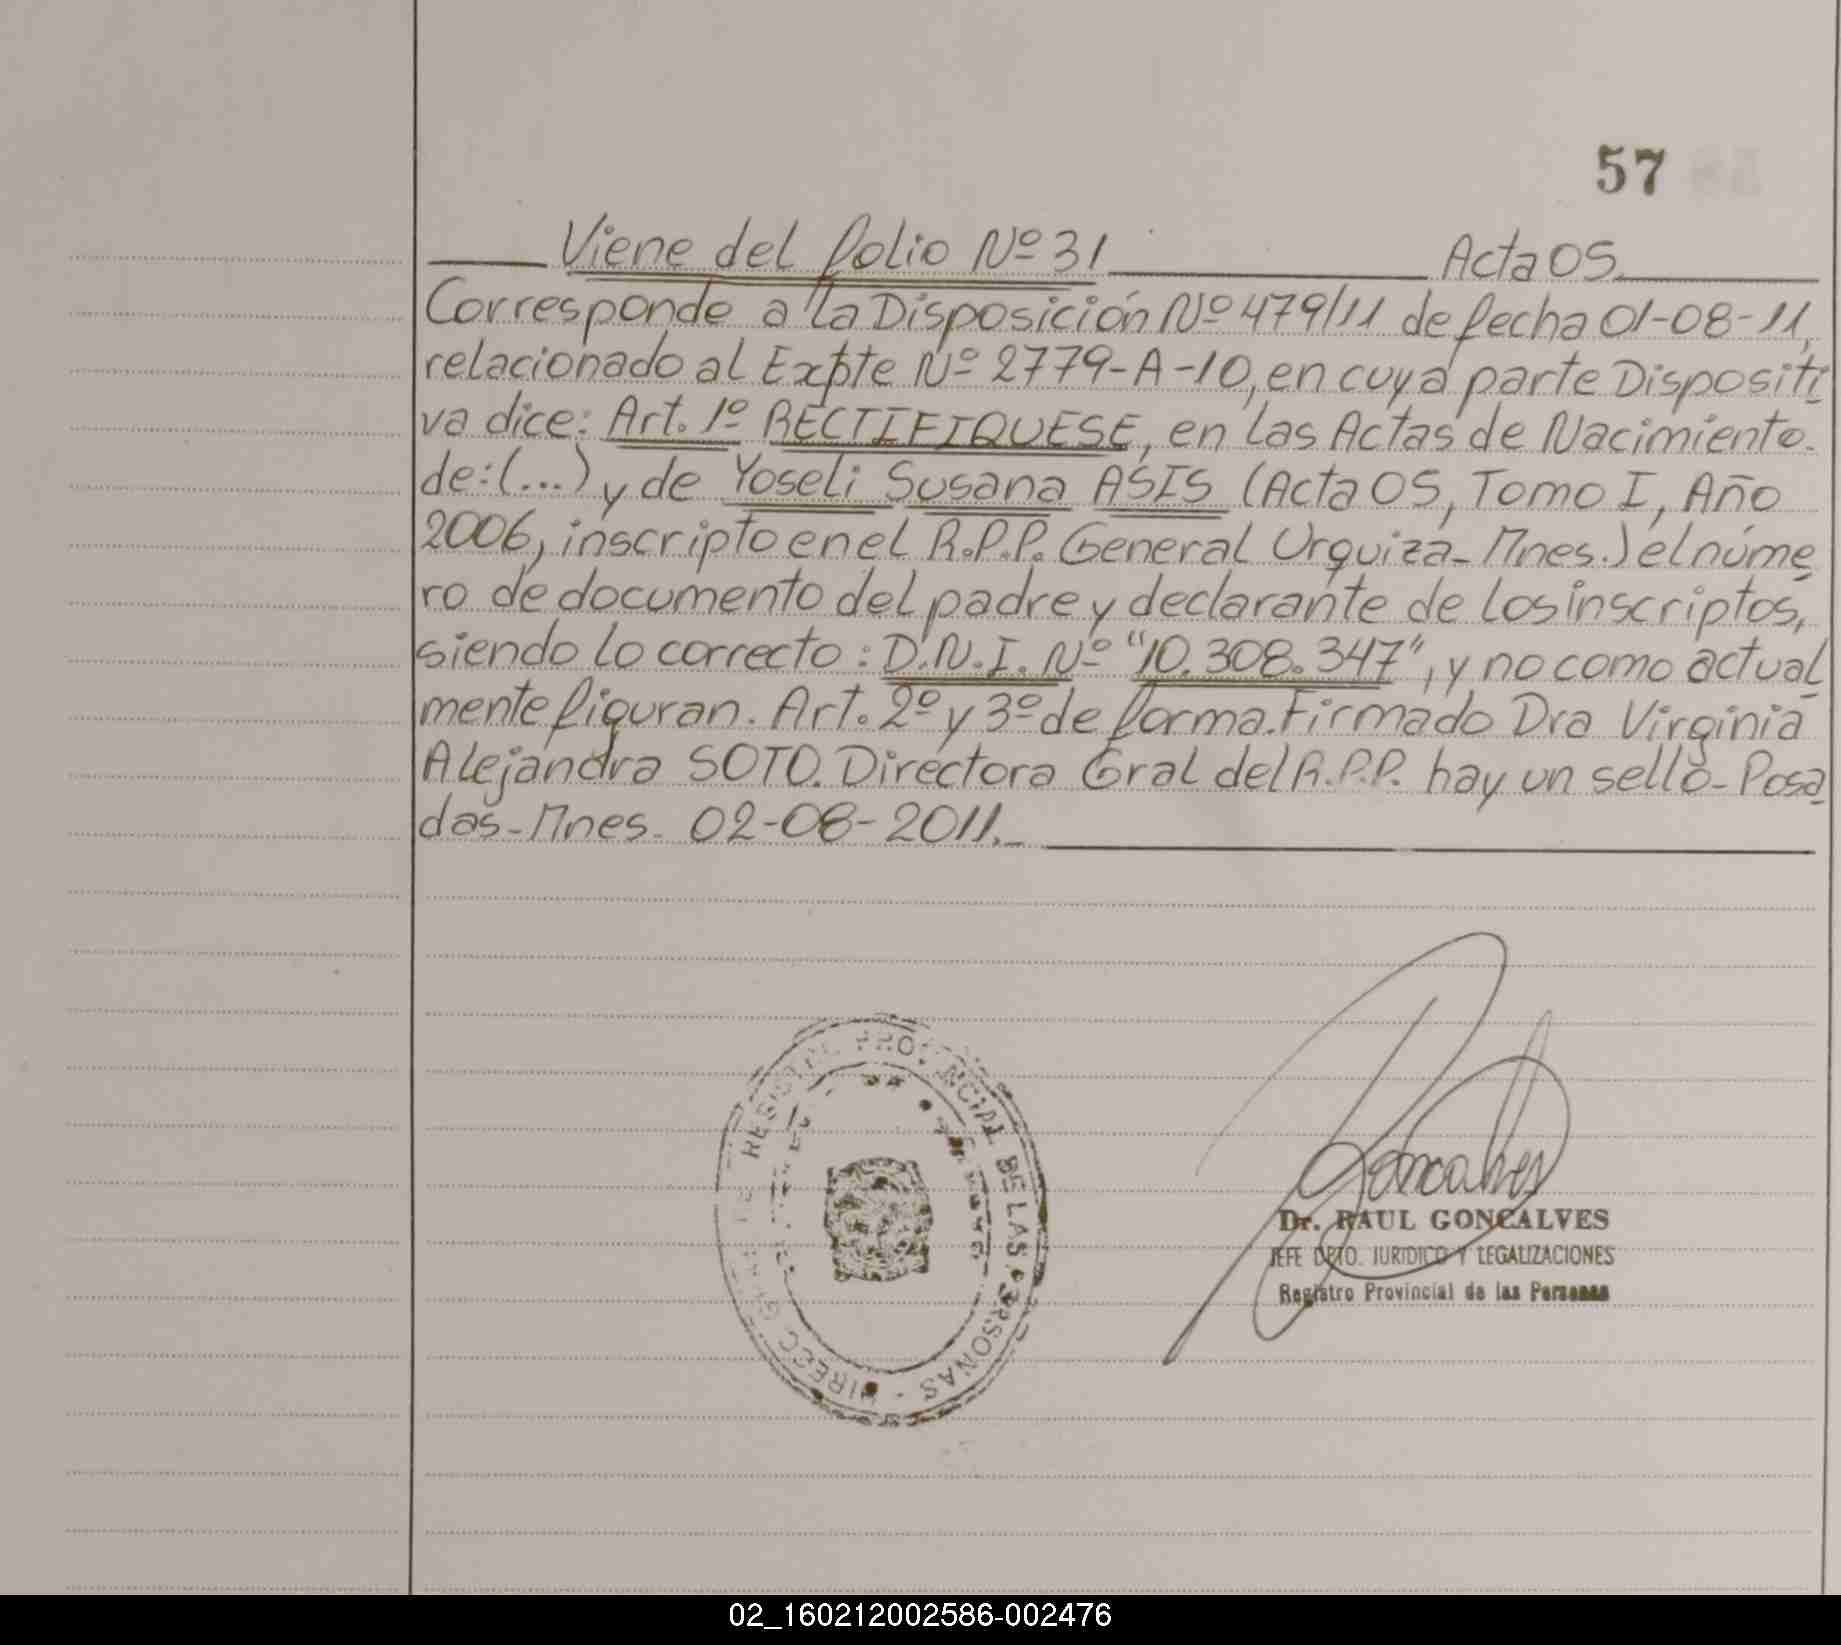 57
Viene del folio Nº 31 Acta 05.
Corresponde a la Disposición Nº 479/11 de fecha 01-08-11,
relacionado al Expte Nº 2779-A-10, en cuya parte Dispositi
va dice: Art. 1º RECTIFIQUESE, en las Actas de Nacimiento.
de: (...) y de Yoseli Susana ASIS (Acta 05, Tomo I, Año
2006, inscripto en el R.P.P. General Urquiza-Mnes.) el núme
ro de documento del padre y declarante de los inscriptos,
siendo lo correcto: D.N.I. Nº "10.308.347", y no como actual
mente figuran. Art. 2º y 3º de forma. Firmado Dra Virginia
Alejandra SOTO. Directora Gral del R.P.P. hay un sello-Posa
das-Mnes. 02-08-2011.-
REGISTRO PROVINCIAL DE LAS PERSONAS -
Goncalves
Dr. RAUL GONCALVES
JEFE DPTO. JURIDICO Y LEGALIZACIONES
Registro Provincial de las Personas
02_160212002586-002476